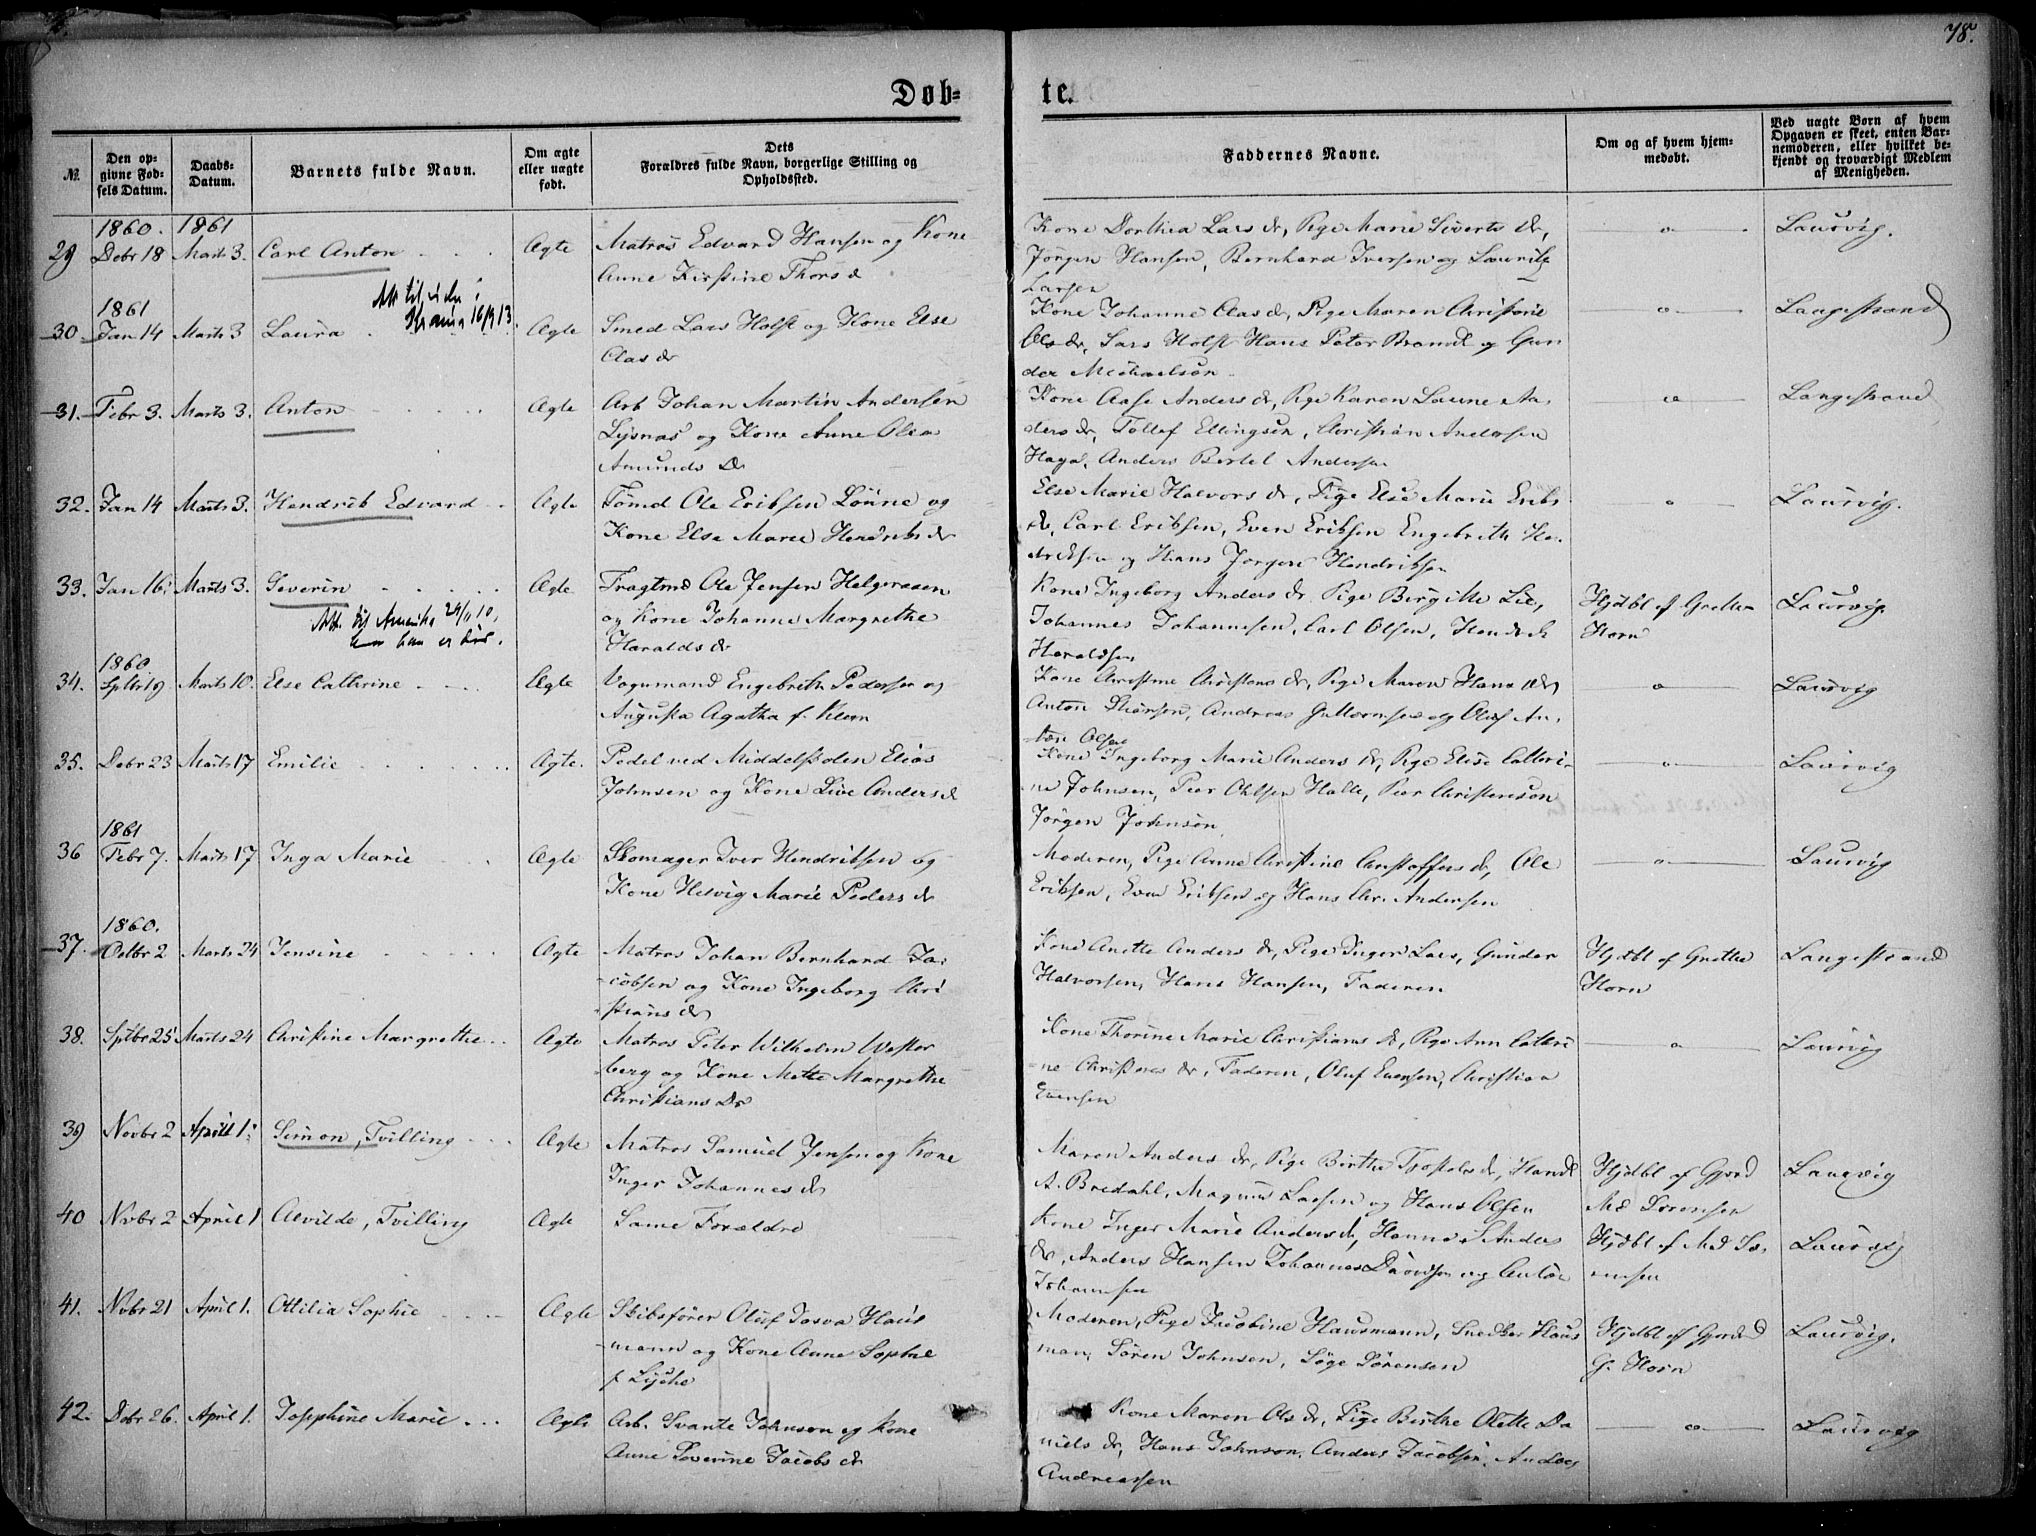 78.
Døb= te.
№.
Den op=
givne Fød=
sels Datum.
Daabs=
Datum.
Barnets fulde Navn.
Om ægte
eller uægte
født.
Dets
Forældres fulde Navn, borgerlige Stilling og
Opholdssted.
Faddernes Navne.
Om og af hvem hjem=
medøbt.
Ved uægte Børn af hvem
Opgaven er skeet, enten Bar=
nemoderen, eller hvilket be=
kjendt og troværdigt Medlem
af Menigheden.
1860. 1861
29 Debr 18 Marts 3. Carl Anton Ægte Matros Edvard Hansen og Kone
Anne Kirstine Thors d
Kone Dorthea Lars dr, Pige Marie Siverts dr,
Jørgen Hansen, Bernhard Iversen og Lauritz
Larsen
Laurvig.
1861
30. Jan 14 Marts 3 Laura Ægte Smed Lars Holst og Kone Else
Clas dr
16/9 13.
Kone Johanne Clas dr, Pige Maren Christine
Ols dr, Lars Holst Hans Peter Brandt og Gun
der Michaelsen
Langestrand
31. Febr 3. Marts 3. Anton Ægte Arb Johan Martin Andersen
Lysnas og Kone Anne Olea
Amunds Dr
Kone Aase Anders dr, Pige Karen Laune An
ders dr, Tollef Ellingsen, Christian Andersen
Haga, Anders Bertel Andersen
Langestrand
32. Jan 14 Marts 3. Hendrik Edvard Ægte Tømd Ole Eriksen Lønne og
Kone Else Marie Hendriks dr
Else Marie Halvors dr, Pige Else Marie Eriks
dr, Carl Eriksen, Even Eriksen Engebreth He
driksen og Hans Jørgen Hendriksen
Laurvig.
33. Jan 16. Marts 3. Severin Ægte Fragtmd Ole Jensen Helgeroaen
og Kone Johanne Margrethe
Haralds dr
Att. til Amerika 24/11 10,
hvor han er død.
Kone Ingeborg Anders dr Pige Birgitte Lie,
Johannes Johannesen, Carl Olsen, Hendrik
Haraldsen
Hjdbt af Grethe
Horn
Laurvig.
1860
34. Sptbr 9 Marts 10. Else Cathrine Ægte Vognmand Engebreth Pedersen og
Augusta Agatha f. Klem
Kone Christine Christens dr, Pige Maren Hans dr
Anton Thorsen, Andreas Guttormsen og Oluf An,
ton Olsen
Laurvig
35. Debr 23 Marts 17 Emilie Ægte. Pedel ved Middelskolen Elias
Johnsen og Kone Live Anders d
Kone Ingeborg Marie Anders dr, Pige Elise Cathri-
ne Johnsen, Peer Ohlsen Halle, Peer Christensen
Jörgen Johnsen
Laurvig
1861
36 Febr 7. Marts 17 Inga Marie Ægte Skomager Iver Hendriksen og
Kone Helvig Marie Peders dr
Moderen, Pige Anne Christine Christoffers dr, Ole
Eriksen, Even Eriksen og Hans Chr. Andersen
Laurvig
1860.
37. Octbr 2 Marts 24 Jensine Ægte Matros Johan Bernhard Ja-
-cobsen og Kone Ingeborg Chri
-stians dr
Kone Anette Anders dr, Pige Inger Lars, Gunder
Halvorsen, Hans Hansen, Faderen
Hjdbt af Grethe
Horn
Langestrand
38. Sptbr 25 Marts 24 Christine Margrethe Ægte Matros Peter Wilhelm Wester
-berg og Kone Mette Margrethe
Christians Dr
Kone Thorine Marie Christians dr, Pige Ann Cathri
-ne Christens dr, Faderen, Oluf Evensen, Christian
Evensen
Laurvig
39 Novbr 2 April 1. Simon, Tvilling Ægte Matros Samuel Jensen og Kone
Inger Johannes dr
Maren Anders dr, Pige Birthe Thostels dr, Handl
A. Bredahl, Magnus Larsen og Hans Olsen
Hjdbt af Gjord
Md Sørensen
Laurvig
40 Novbr 2 April 1 Alvilde, Tvilling Ægte Samme Forældre
Kone Inger Marie Anders dr, Hanna S Anders
dr, Anders Hansen Johannes Davidsen og Anton
Johannsen
Hjdbt af Md Sø-
rensen
Laurvig
41. Nvbr 21 April 1. Ottilia Sophie Ægte Skibsfører Oluf Josva Haus
-mann og Kone Anne Sophie
f Lyche
Moderen, Pige Jacobine Hausmann, Snedker Haus
man, Søren Johnsen, Søge Sørensen
Hjdbt af Gjordmd
G. Horn
Laurvig.
42. Debr 26. April 1. Josephine Marie Ægte Arb. Svante Johnson og Kone
Anne Severine Jacobs dr
Kone Maren Ols dr, Pige Birthe Olette Da
niels dr, Hans Johnson, Anders Jacobsen, Anders
Andreassen
Laurvig